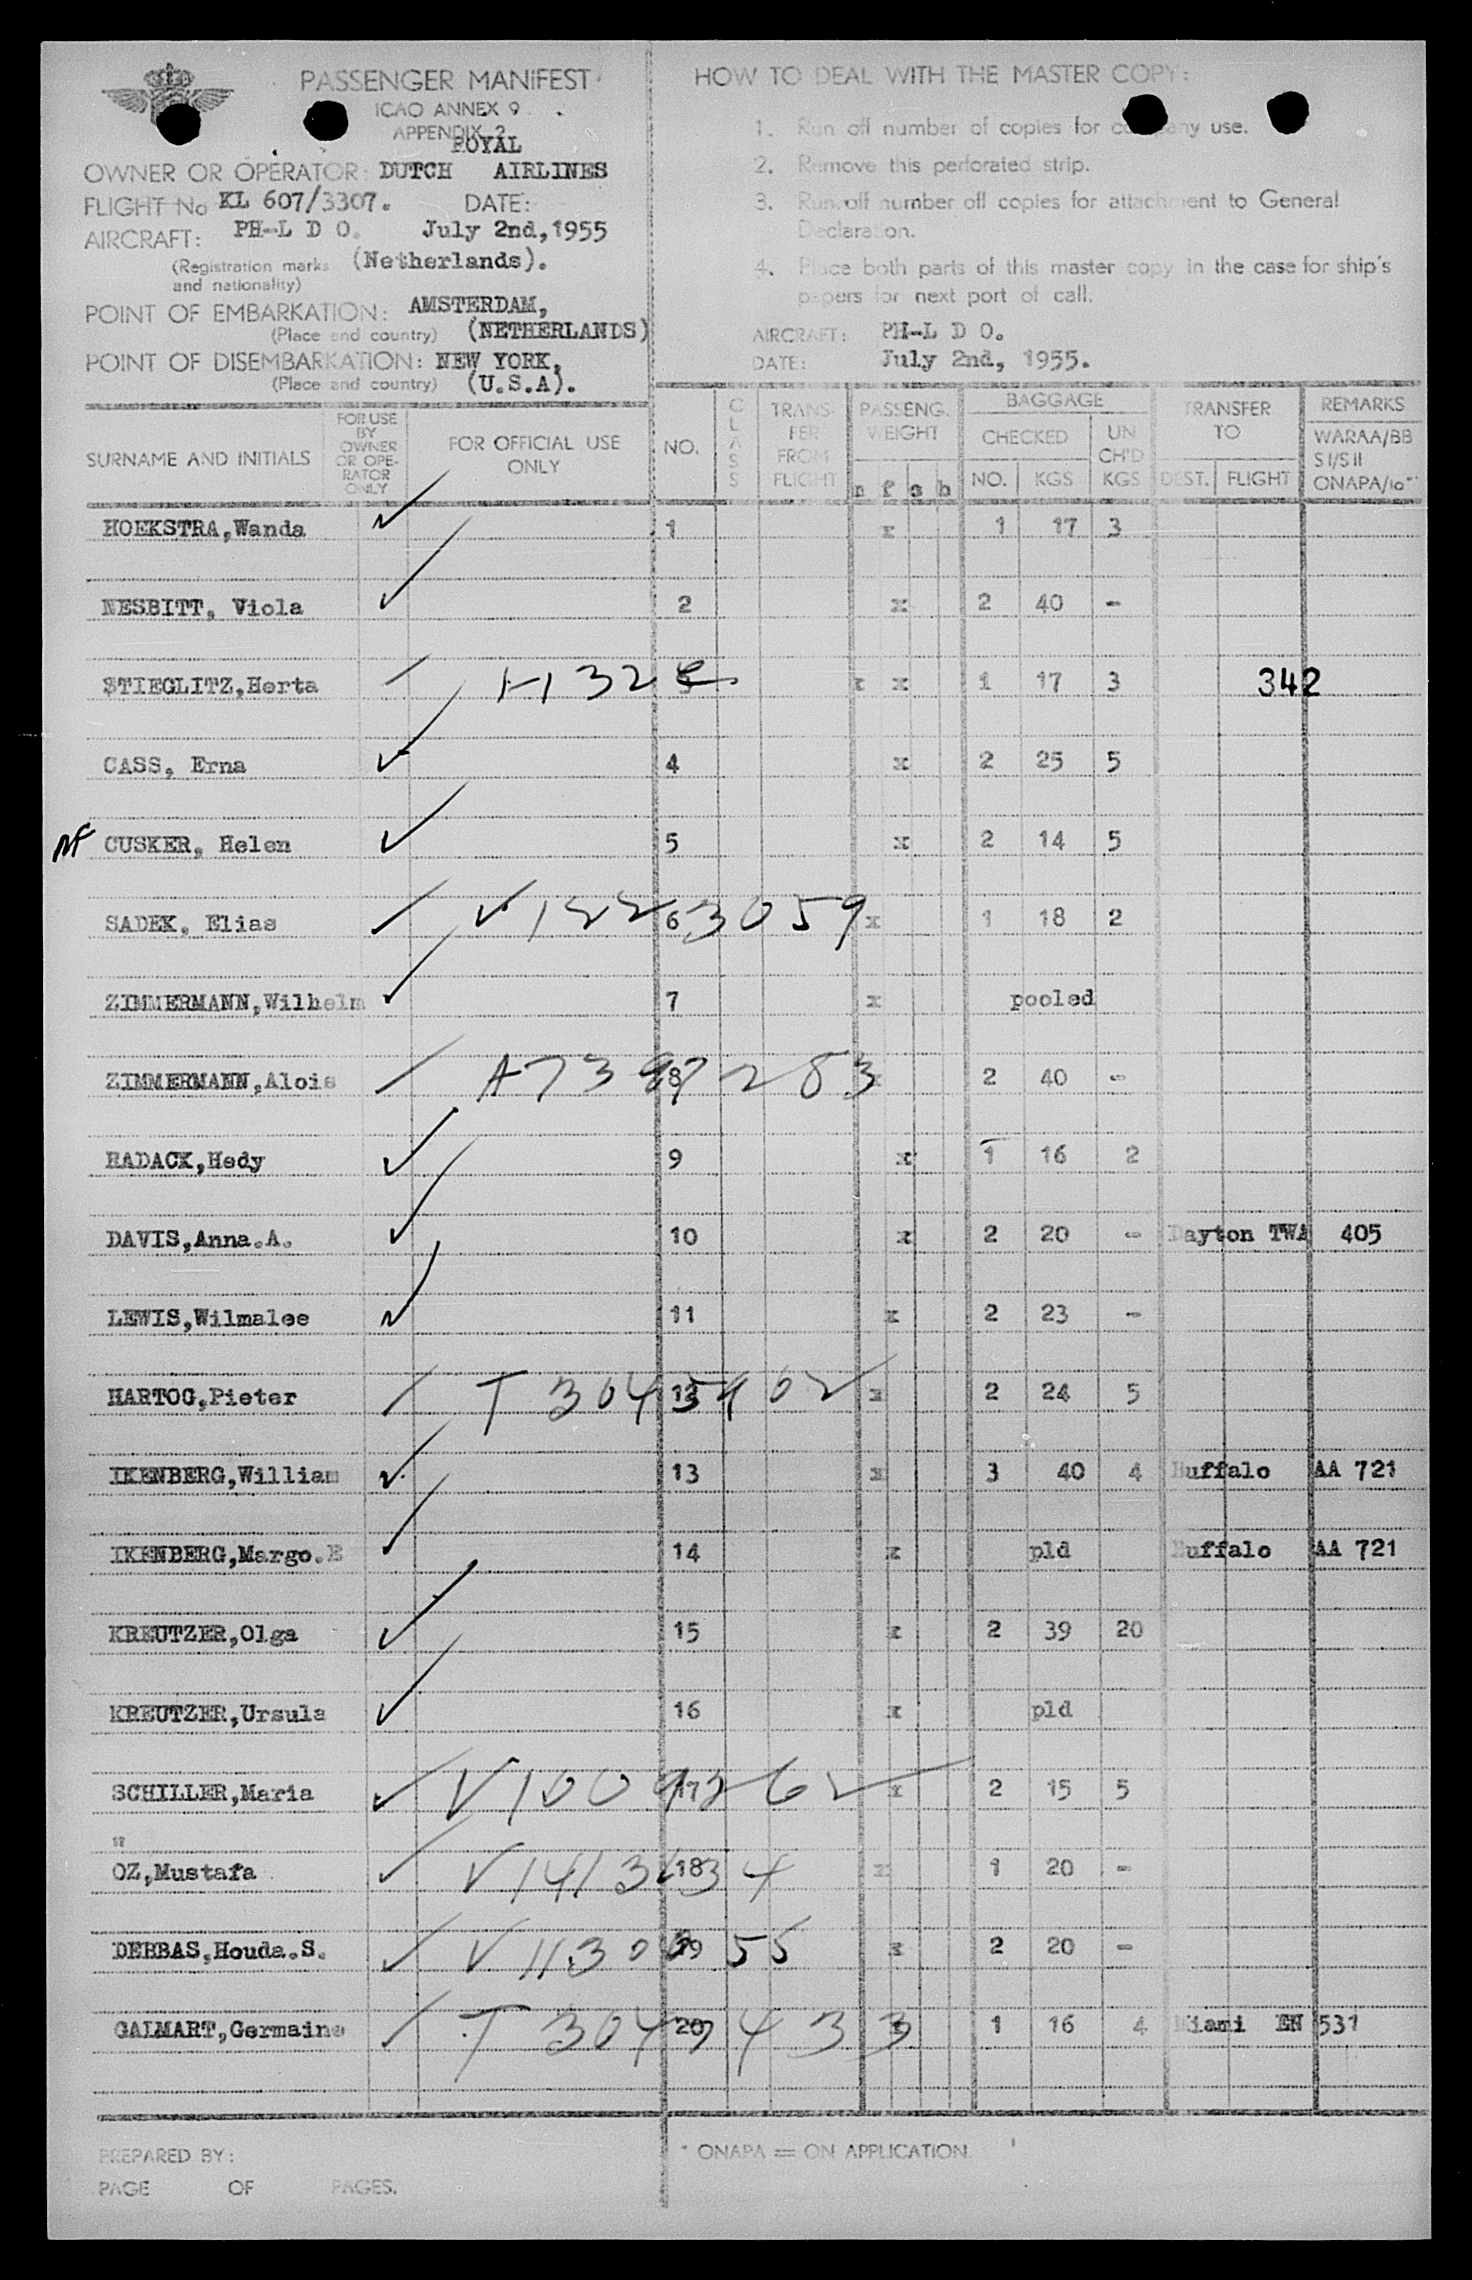 PASSENGER MANIFEST
ICAO ANNEX 9
APPENDIX 2
OWNER OR OPERATOR: ROYAL DUTCH AIRLINES
FLIGHT No KL 607/3307. DATE:
AIRCRAFT: PH-L D O. July 2nd,1955
(Registration marks and nationality) (Netherlands).
POINT OF EMBARKATION: AMSTERDAM,
(Place and country) (NETHERLANDS)
POINT OF DISEMBARKATION: NEW YORK,
(Place and country) (U.S.A).
HOW TO DEAL WITH THE MASTER COPY:
1. Run off number of copies for company use.
2. Remove this perforated strip.
3. Run off number off copies for attachment to General
Declaration.
4. Place both parts of this master copy in the case for ship's
papers for next port of call.
AIRCRAFT: PH-L D O.
DATE: July 2nd, 1955.
SURNAME AND INITIALS
FOR USE BY OWNER OR OPE-RATOR ONLY
FOR OFFICIAL USE ONLY
NO.
CLASS
TRANS-FER FROM FLIGHT
PASSENG. WEIGHT
m f c b
BAGGAGE
CHECKED
NO. KGS
UN CH'D KGS
TRANSFER TO
DEST. FLIGHT
REMARKS
WARAA/BB
SI/SII
ONAPA/10*
HOEKSTRA,Wanda 1 x 1 17 3
NESBITT, Viola 2 x 2 40 -
STIEGLITZ,Herta H32 3 x x 1 17 3 342
CASS, Erna 4 x 2 25 5
CUSKER, Helen 5 x 2 14 5
SADEK, Elias V1223059 6 x 1 18 2
ZIMMERMANN,Wilhelm 7 x pooled
ZIMMERMANN,Alois 8 x 2 40 -
RADACK,Hedy 9 x 1 16 2
DAVIS,Anna.A. 10 x 2 20 - Dayton TWA 405
LEWIS,Wilmalee 11 x 2 23 -
HARTOG,Pieter 12 x 2 24 5
IKENBERG,William 13 x 3 40 4 Buffalo AA 721
IKENBERG,Margo.E 14 x pld Buffalo AA 721
KREUTZER,Olga 15 x 2 39 20
KREUTZER,Ursula 16 x pld
SCHILLER,Maria 17 x 2 15 5
OZ,Mustafa 18 x 1 20 -
DEBBAS,Houda.S. 19 x 2 20 -
GALMART,Germaine 20 x 1 16 4 Miami EN 531
PREPARED BY:
PAGE OF PAGES.
* ONAPA = ON APPLICATION.